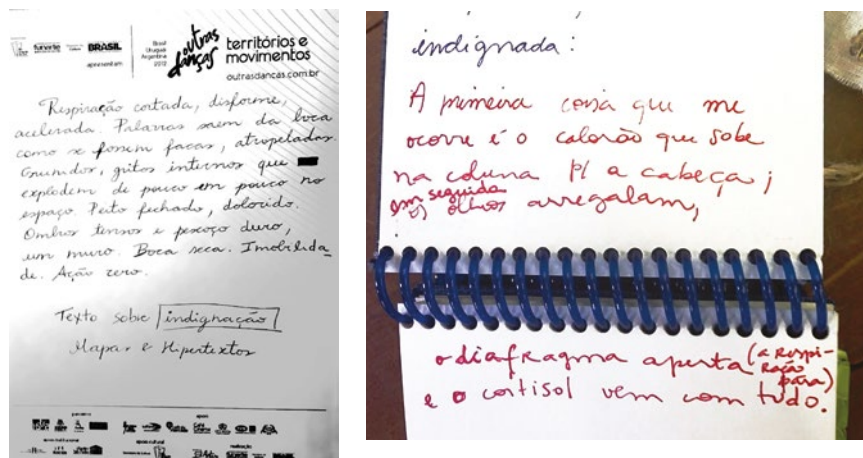 funarte
BRASIL
apresentam
Brasil
Uruguai
Argentina
2012
outras
danças
territórios e
movimentos
outrasdancas.com.br
Respiração cortada, disforme,
acelerada. Palavras saem da boca
como se fossem facas, atropeladas.
Grunidos, gritos internos que
explodem de pouco em pouco no
espaço. Peito fechado, dolorido.
Ombros tensos e pescoço duro,
um muro. Boca seca. Imobilida_
de. Ação zero.
Texto sobre indignação
Mapas e Hipertextos
apoio
realização
BRASIL
indignada:
A primeira coisa que me
ocorre é o calorão que sobe
na coluna p/ a cabeça;
em seguida
os olhos arregalam,
o diafragma aperta (a respi-
ração
para)
e o cortisol vem com tudo.